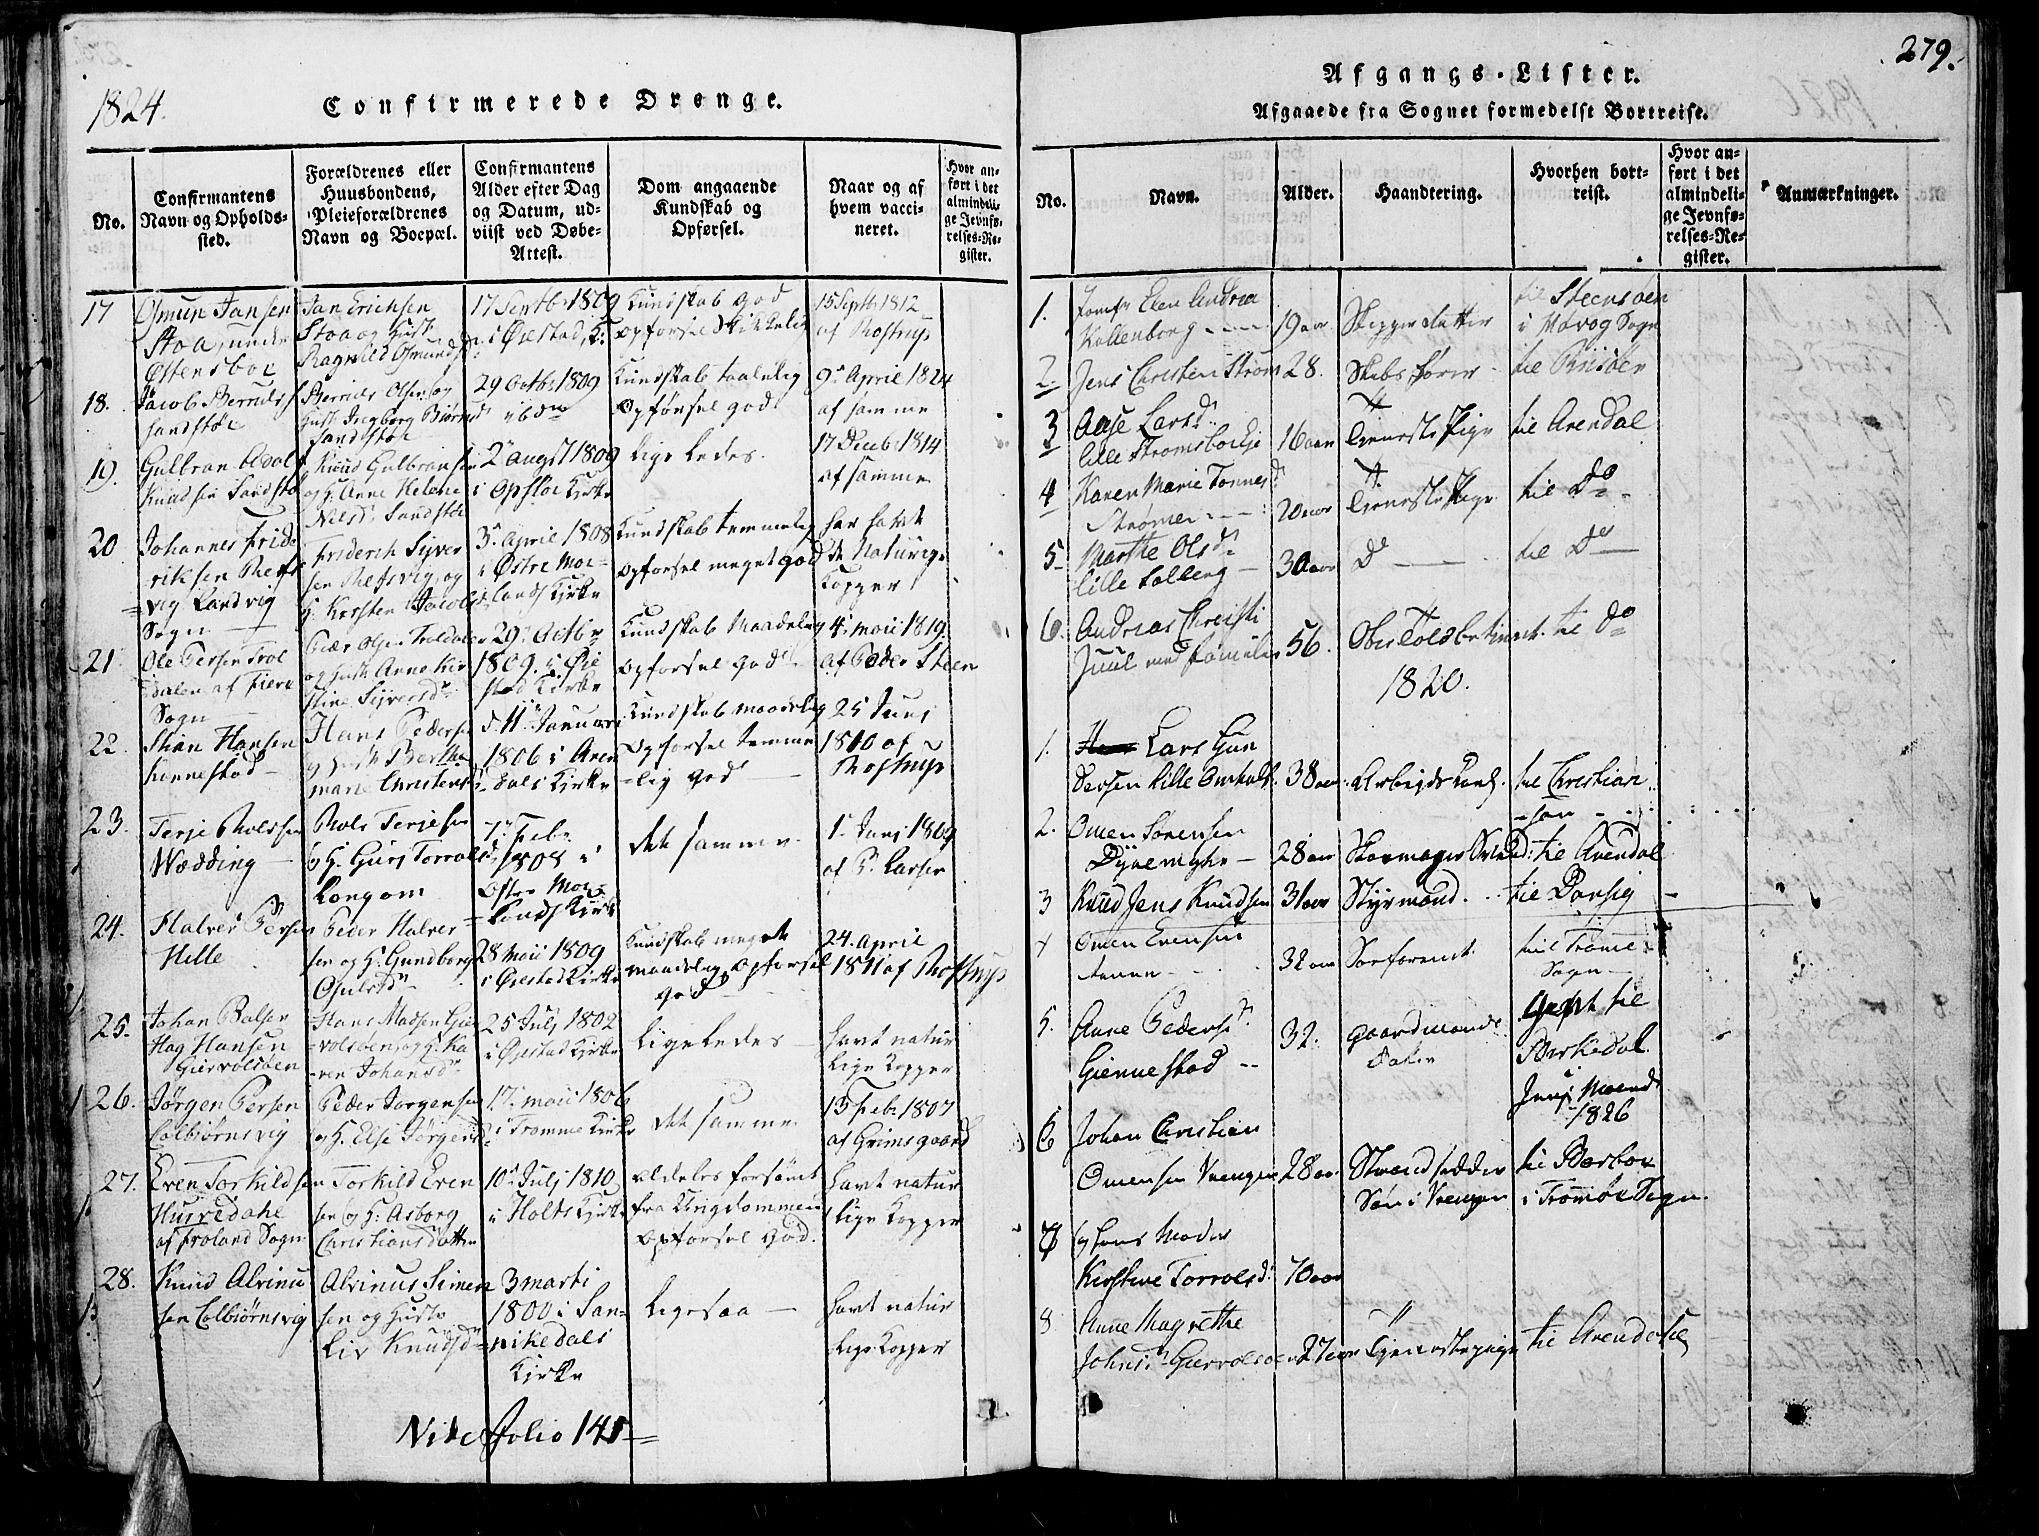 1824.
Confirmerede Drenge.
No.
Confirmantens Navn og Opholds-sted.
Forældrenes eller Huusbondens, Pleieforældrenes Navn og Boepæl.
Confirmantens Alder efter Dag og Datum, ud-viist ved Døbe-Attest.
Dom angaaende Kundskab og Opførsel.
Naar og af hvem vacci-neret.
Hvor an-ført i det almindeli-ge Jevnfø-relses-Re-gister.
17
Osmun Jansen
Stoa, under
Østensboe
Jan Erichsen
Stoa og Hust.
Ragnild Osmundsd
17 Septbr 1809
i Øiestad K.
Kundskab god
opførsel skikkelig
15 Septb 1812
af Rostrup
18.
Jacob Berntss
Sandstøe
Bernts Olsen og
Hust Ingborg Biørnsd
Sandstøe
29 Octbr 1809
ibdn
Kundskab taalelig
Opførsel god
9 April 1824
af samme
19.
Gulbran Adolf
Knudsen Sandstø
Knud Gulbransen
og H. Anne Helene
Nilsd. Sandstøe
2 augst 1809
i Opsloe Kirke
Lige ledes.
17 Decbr 1814
af samme
20
Johannes Fride
riksen Refs
vig Landvig
Sogn
Friderik Syver
sen Refsvig, og
H. Kirsten Jacobsd
3 april 1808
i Østre Mo-
lands Kirke
Kundskab temmelig
opførsel meget god
har havt
de Naturlige
Kopper
21
Ole Persen Trol
dalen af Fiere
Sogn
Peder Olsen Troldalen
og Hust Anne Kir
stine Syversd
29 Octbr
1809. i Øie
stad Kirke
Kundskab Maadelig
opførsel god
4 maii 1819
af Peder Steen
22
Stian Hansen
Kannestad
Hans Pedersen
og Hust Berthe
marie Christensd
d 11 Januari
1806 i Aren
dals Kirke
Kundskab maadelig
Opførsel temme
-lig god
25 Junj
1810 af
Rostrup
23.
Terje Rolfsen
Wædding
Rols Terjesen
og H. Guri Torrolsd
Longom
7 Feb.
1808 i
Østre Mo-
lands Kirk
det samme
1 Junj 1809
af P. Larsen
24.
Halver Persen
Helle
Peder Halver
sen og H. Gundborg
Osulsd
28 Maii 1809
i Øiestad Kirke
Kundskab meget
maadelig Opførsel
god
24. April
1811 af Rostrup
25.
Johan Balser
Hag Hansen
Giervolsøen
Hans Madsen Gier
volsøen og H. Ka
ren Johansd
25 July 1802
i Øjestad Kirke
Ligeledes
havt natur
lige Kopper
26.
Jørgen Persen
Colbiørnsvig
Peder Jørgensen
og H. Else Jørgensd
17 maii 1806
i Tromme Kirke
det samme
13 Feb. 1807
af Grimsgaard
27.
Even Torkildsen
Hurredahl
af Froland Sogn
Torkild Even
sen og H. Asborg
Christiansdatter
10 July 1810
i Holts Kirke
aldeles forsømt
fra Ungdommen
Opførsel God.
havt natur
lige Kopper
28.
Knud Alvinu
sen Colbiørnsvig
Alvinus Simen
sen og Hustr
Liv Knudsd
3 marti
1800 i San-
nikedals
Kirke
Ligesaa
havt natur
lige Kopper
Vide Folio 141
279.
Afgangs-Lister.
Afgaaede fra Sognet formedelst Bortreise.
No.
Navn.
Alder.
Haandtering.
Hvorhen bort-reist.
Hvor an-ført i det almindeli-ge Jevnfø-relses-Re-gister.
Anmærkninger.
1.
Jomfr Elen Andrea
Kallenborg
19 aar
Skipperdatter
til Steensøen
i Wovog Sogn
2.
Jens Christen Strøm
28.
Skibsfører
til Riisøer
3
Aase Larsd
lille Strømsboeje
16 aar
Tieneste Pige
til Arendal
4
Karen Marie Tønnesd
Strømen
20 aar
Tieneste Pige
til Do
5
Marthe Olsd
lille Salberg
30 aar
Do
til Do
6.
Andreas Christi
Juul med familie
56.
Ober Toldbetient.
til Do
1820.
1.
Lars Gun
dersen lille Omholt.
38 aar.
Arbeids Karl.
til Christian
-san
2.
Omen Sørensen
Dynemyhr
28 aar
Skoemager Svend
til Arendal
3
Knud Jens Knudsen
31 aar
Styrmand
til Dansig
4
Omen Evensen
32 aar
Sorforent
til Tromø
Sogn
5.
Anne Pedersd
Giennestad
32.
gaardmands
Datter
Gift til
Birkedal
i
Junj Maaned
1826
6
Johan Christian
Omensen Vrengen
28 aar.
Strandsidder
Søn i Vrengen
til Barboe
i Tromøe Sogn.
7
Hans Moder
Kirstine Torrolsd.
70 aar
8
Anne Magrethe
Johnsd. Giervolsøen
27 aar
Tjenestepige
til Arendahl